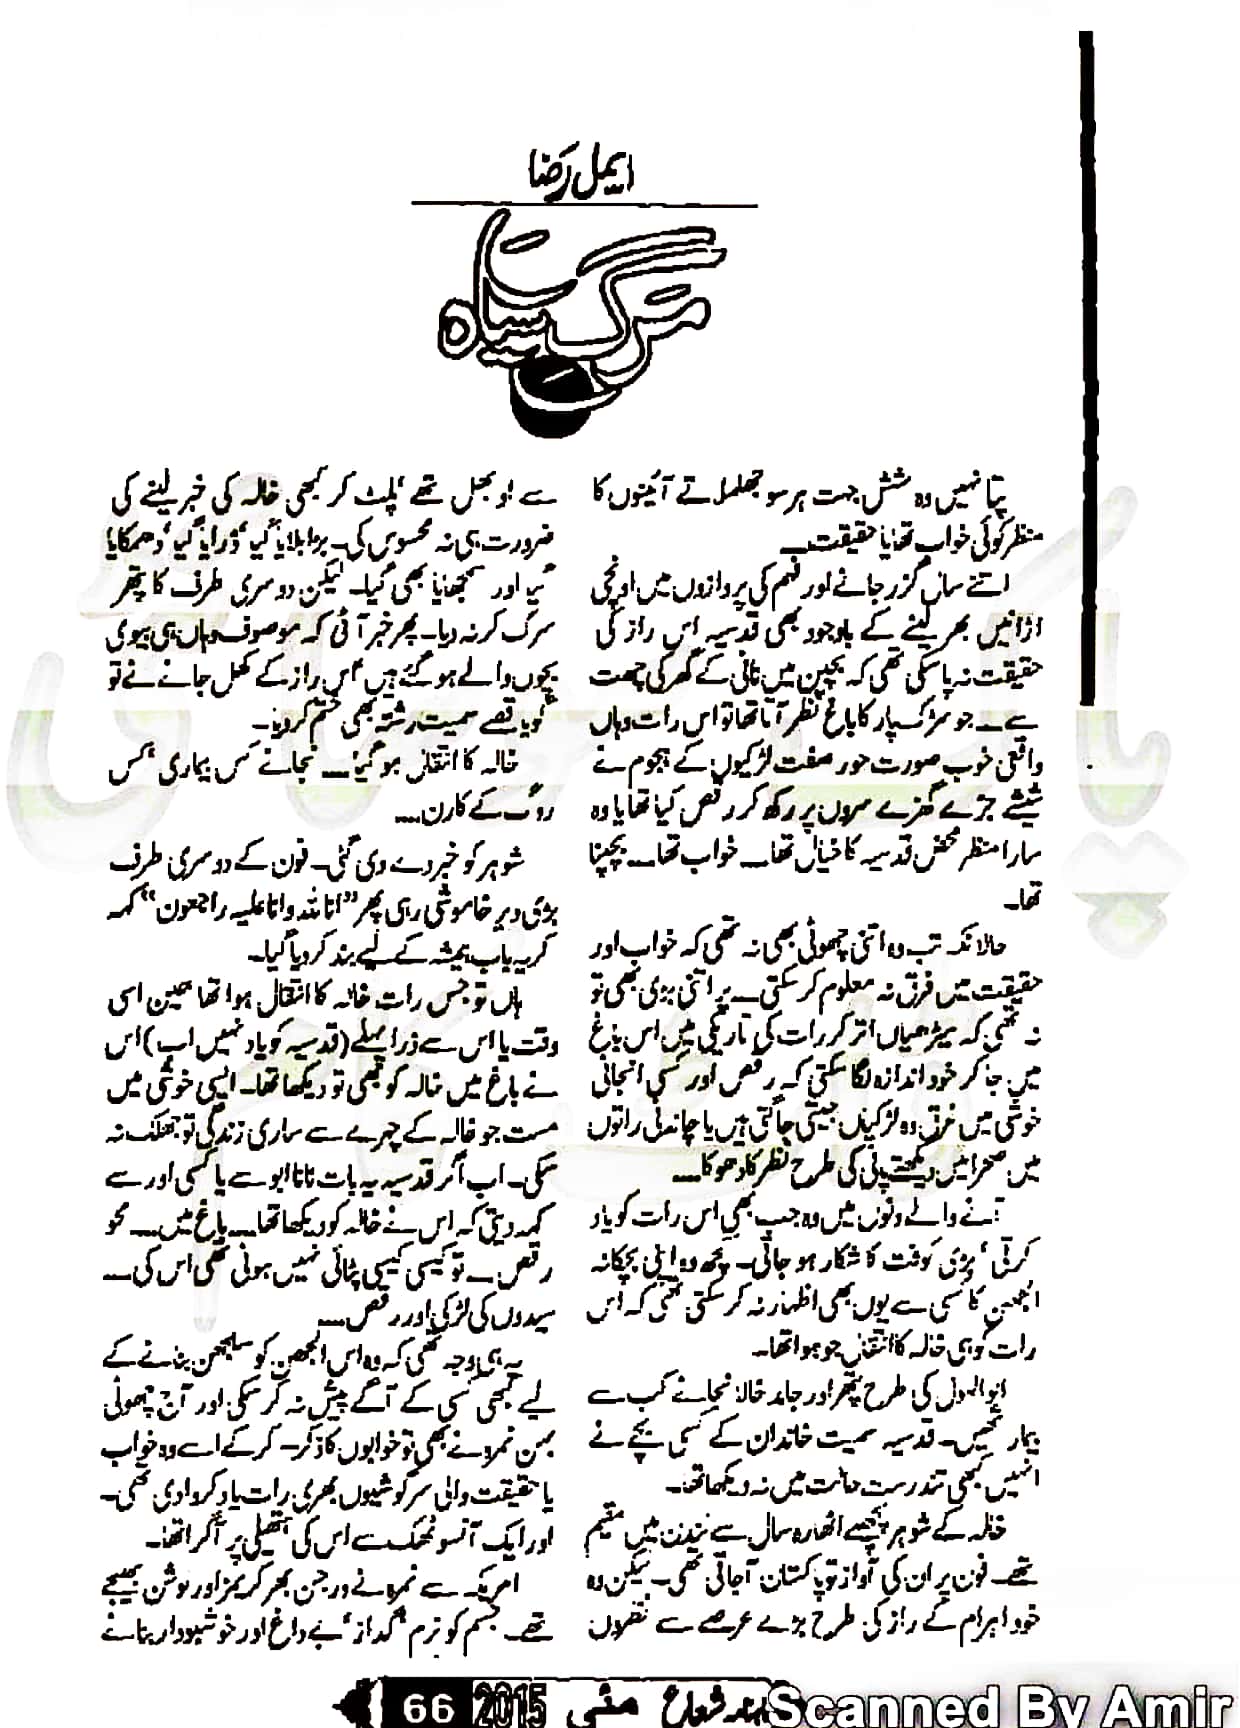 ایمل رضا
مرگ سیاہ
پتا نہیں وہ شش جہت ہر سو جھلملاتے آئینوں کا
منظر کوئی خواب تھا یا حقیقت۔
اتنے سال گزر جانے اور فہم کی پروازوں میں اونچی
اڑانیں بھر لینے کے باوجود بھی قدسیہ اس راز کی
حقیقت نہ پا سکی تھی کہ بچپن میں نانی کے گھر کی چھت
سے۔ جو سڑک پار کا باغ نظر آتا تھا تو اس رات وہاں
واقعی خوب صورت حور صفت لڑکیوں کے ہجوم نے
شیشے جڑے گھڑے سروں پر رکھ کر رقص کیا تھا یا وہ
سارا منظر محض قدسیہ کا خیال تھا۔ خواب تھا۔ بچپنا
تھا۔
حالانکہ تب وہ اتنی چھوٹی بھی نہ تھی کہ خواب اور
حقیقت میں فرق نہ معلوم کر سکتی۔ پر اتنی بڑی بھی تو
نہ تھی کہ سیڑھیاں اتر کر رات کی تاریکی میں اس باغ
میں جا کر خود اندازہ لگا سکتی کہ رقص اور کسی انجانی
خوشی میں غرق وہ لڑکیاں جیتی جاگتی ہیں یا چاندنی راتوں
میں صحرا میں دیکھتے پانی کی طرح نظر کا دھوکا....
آنے والے دنوں میں وہ جب بھی اس رات کو یاد
کرتی' بڑی کوفت کا شکار ہو جاتی۔ پھر وہ اپنی بچکانہ
الجھن کا کسی سے یوں بھی اظہار نہ کر سکتی تھی کہ اس
رات کو ہی خالہ کا انتقال جو ہوا تھا۔
ابوالہول کی طرح پتھر اور جامد خالا نجانے کب سے
بیمار تھیں۔ قدسیہ سمیت خاندان کے کسی بچے نے
انہیں کبھی تندرست حالت میں نہ دیکھا تھا۔
خالہ کے شوہر پچھلے اٹھارہ سال سے لندن میں مقیم
تھے۔ فون پر ان کی آواز تو پاکستان آ جاتی تھی۔ لیکن وہ
خود اہرام کے راز کی طرح بڑے عرصے سے نظروں
سے اوجھل تھے' پلٹ کر کبھی خالہ کی خبر لینے کی
ضرورت ہی نہ محسوس کی۔ بڑا بلایا گیا' ڈرایا گیا' دھمکایا
گیا اور سمجھایا بھی گیا۔ لیکن دوسری طرف کا پتھر
سرک کر نہ دیا۔ پھر خبر آئی کہ موصوف وہاں ہی بیوی
بچوں والے ہو گئے ہیں' اس راز کے کھل جانے نے تو
گویا قصے سمیت رشتہ بھی ختم کر دیا۔
خالہ کا انتقال ہو گیا۔ نجانے کس بیماری' کس
روگ کے کارن....
شوہر کو خبر دے دی گئی۔ فون کے دوسری طرف
بڑی دیر خاموشی رہی پھر "انا للہ وانا علیہ راجعون" کہہ
کر یہ باب ہمیشہ کے لیے بند کر دیا گیا۔
ہاں تو جس رات خالہ کا انتقال ہوا تھا عین اسی
وقت یا اس سے ذرا پہلے (قدسیہ کو یاد نہیں اب) اس
نے باغ میں خالہ کو بھی تو دیکھا تھا۔ ایسی خوشی میں
مست جو خالہ کے چہرے سے ساری زندگی تو جھلک نہ
سکی۔ اب اگر قدسیہ یہ بات نانا ابو سے یا کسی اور سے
کہہ دیتی کہ اس نے خالہ کو دیکھا تھا۔ باغ میں.... محو
رقص۔ تو کیسی کیسی پٹائی نہیں ہونی تھی اس کی۔
سیدوں کی لڑکی اور رقص....
یہ ہی وجہ تھی کہ وہ اس الجھن کو سلجھن بنانے کے
لیے کبھی کسی کے آگے پیش نہ کر سکی اور آج چھوٹی
بہن نمرہ نے بھی تو خوابوں کا ذکر۔ کر کے اسے وہ خواب
یا حقیقت والی سرگوشیوں بھری رات یاد کروا دی تھی۔
اور ایک آنسو ٹھک سے اس کی ہتھیلی پر آ گرا تھا۔
امریکہ سے نمرہ نے درجن بھر کریمز اور لوشن بھیجے
تھے۔ جسم کو نرم' گداز' بے داغ اور خوشبودار بنانے
ماہنامہ شعاع مئی 2015 66
Scanned By Amir